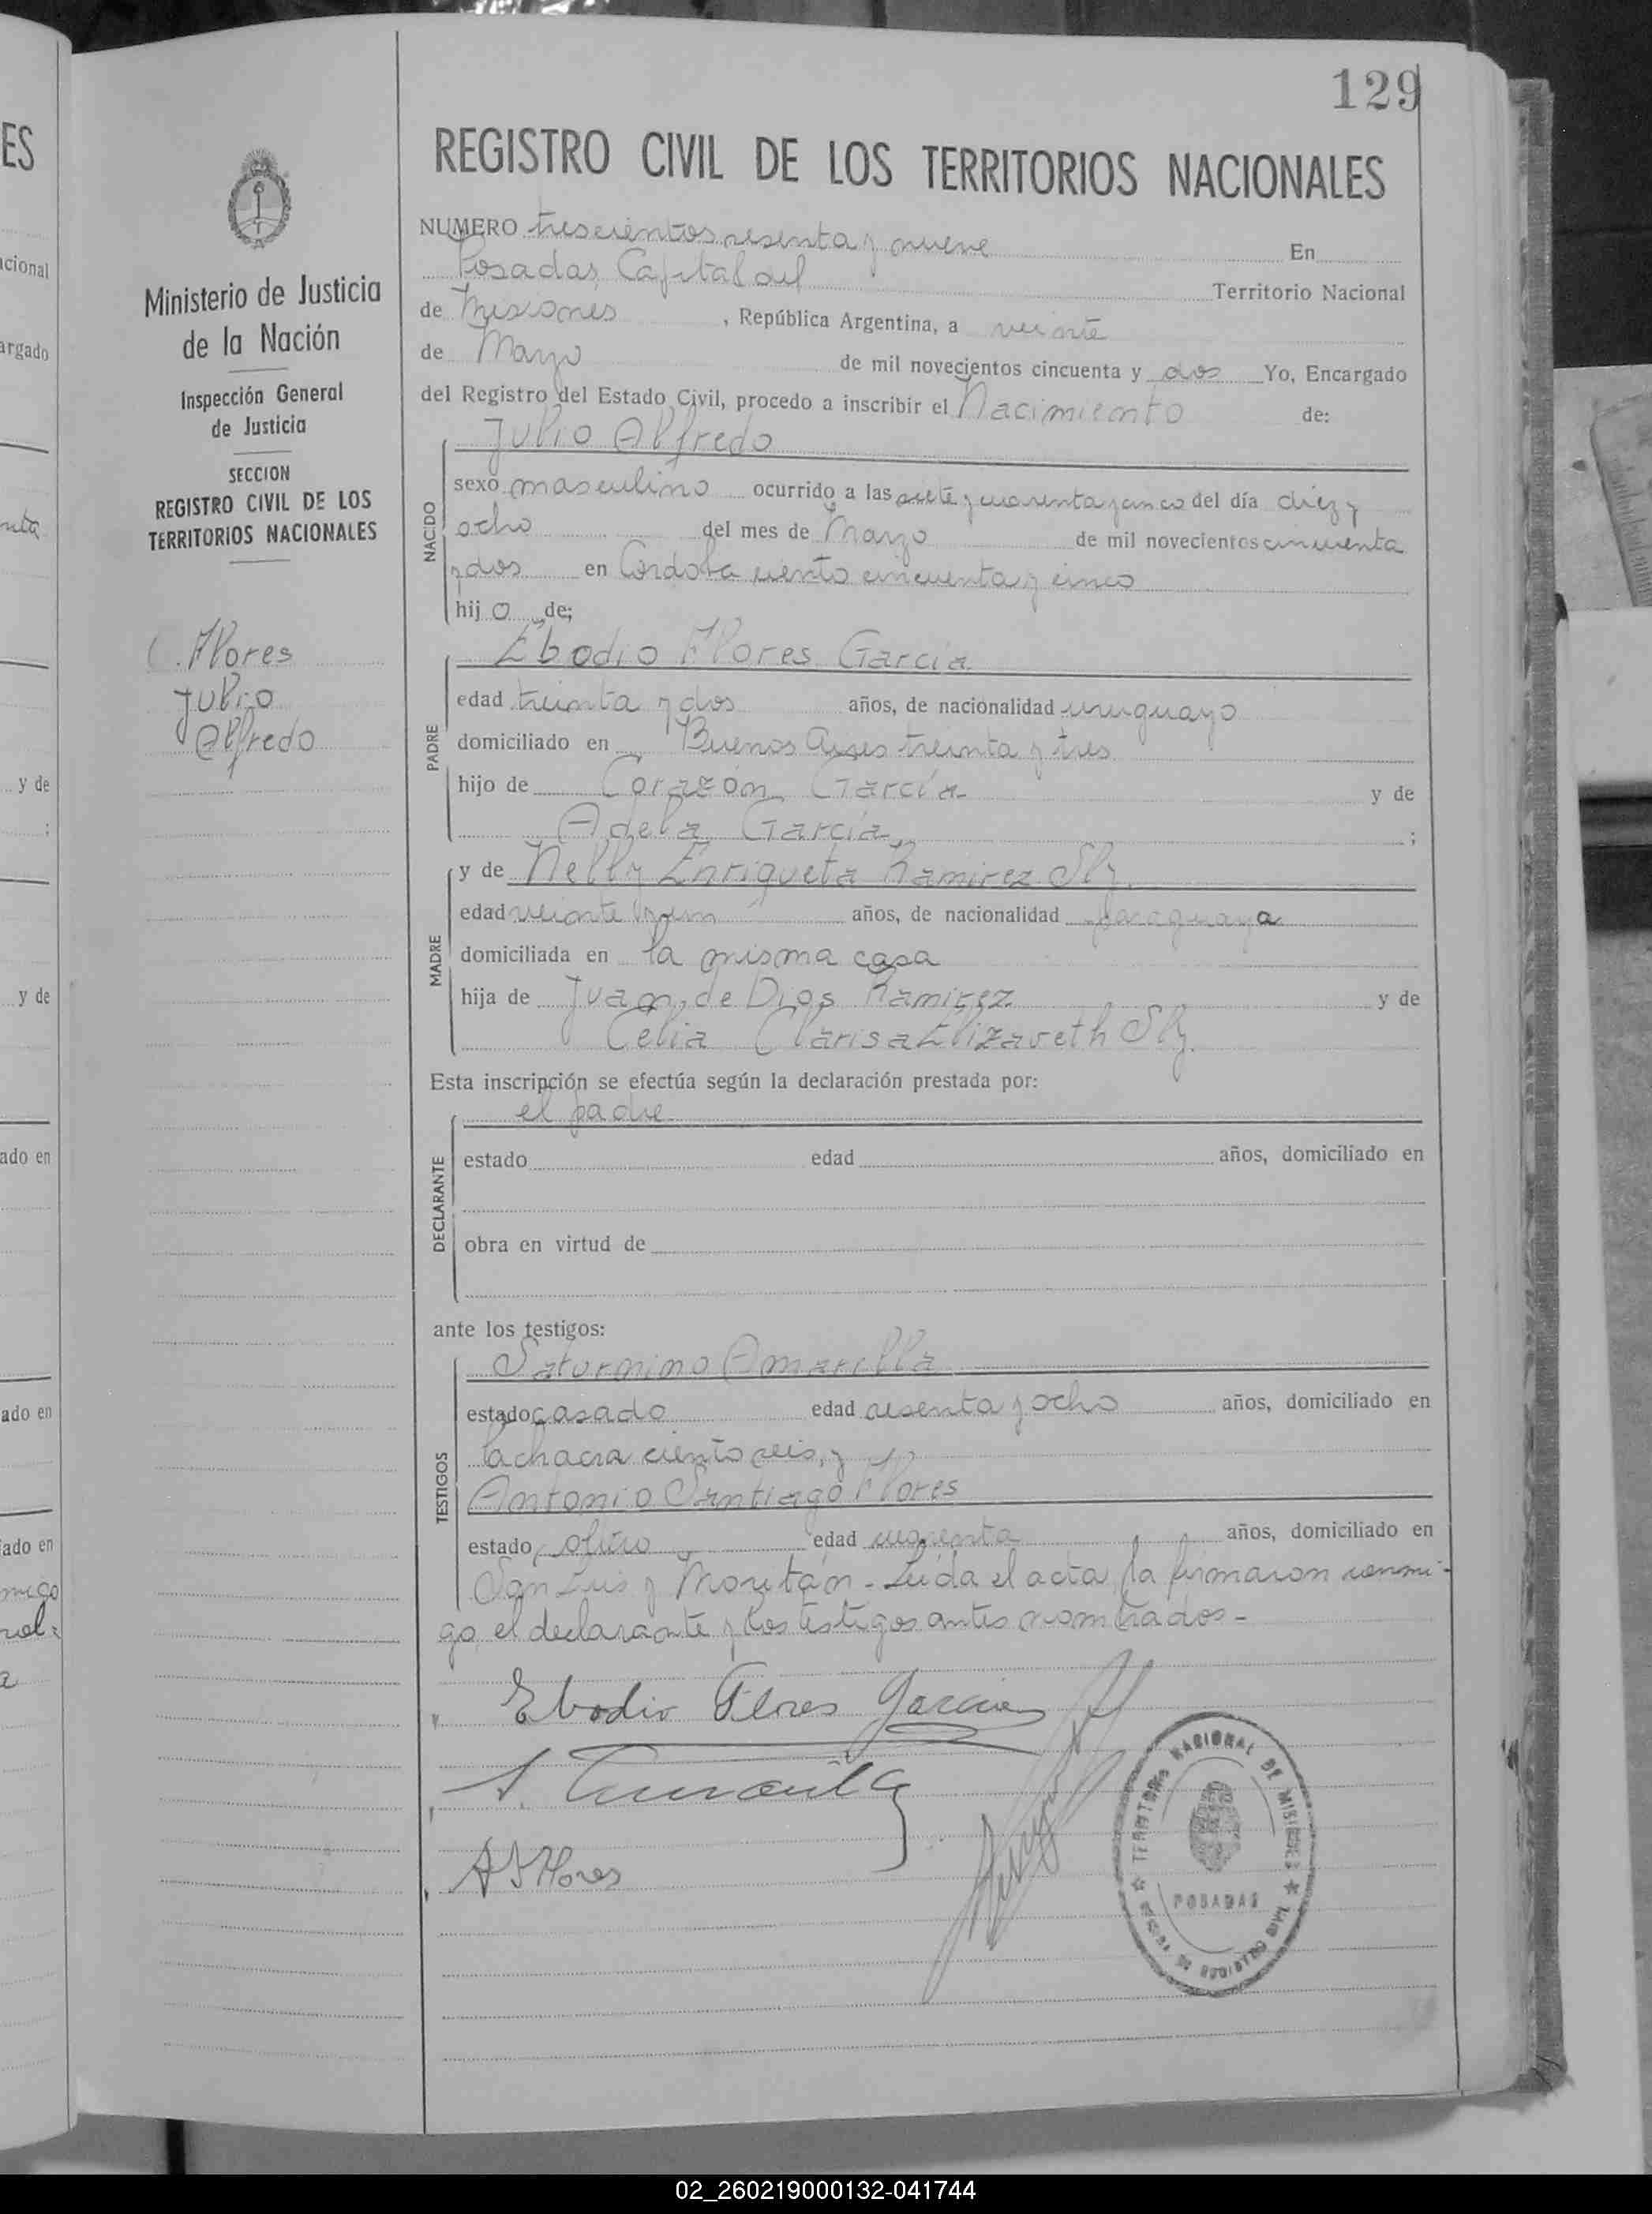 129
REGISTRO CIVIL DE LOS TERRITORIOS NACIONALES
Ministerio de Justicia
de la Nación
Inspección General
de Justicia
SECCION
REGISTRO CIVIL DE LOS
TERRITORIOS NACIONALES
Flores
Julio
Alfredo
NUMERO trescientos sesenta y nueve En
Posadas, Capital del Territorio Nacional
de Misiones, República Argentina, a veinte
de Marzo de mil novecientos cincuenta y dos Yo, Encargado
del Registro del Estado Civil, procedo a inscribir el Nacimiento de:
Julio Alfredo
NACIDO
sexo masculino ocurrido a las siete y cuarenta y cinco del día diez y
ocho del mes de Marzo de mil novecientos cincuenta
y dos en Córdoba ciento cincuenta y cinco
hijo de;
Ebodio Flores García
PADRE
edad treinta y dos años, de nacionalidad uruguayo
domiciliado en Buenos Aires treinta y tres
hijo de Corazón García y de
Adela García ;
y de Nelly Enriqueta Ramirez Sly.
MADRE
edad veinte y un años, de nacionalidad paraguaya
domiciliada en la misma casa
hija de Juan de Dios Ramirez y de
Celia Clarisa Elizaveth Sly.
Esta inscripción se efectúa según la declaración prestada por:
el padre
DECLARANTE
estado edad años, domiciliado en
obra en virtud de
ante los testigos:
Saturnino Amarilla
TESTIGOS
estado casado edad sesenta y ocho años, domiciliado en
la chacra ciento seis, y
Antonio Santiago Flores
estado edad cuarenta años, domiciliado en
San Luis y Moritán - Leída el acta, la firmaron conmi-
go, el declarante y los testigos antes nombrados -
Ebodio Flores Garcia
S. Amarilla
A S Flores
TERRITORIO NACIONAL DE MISIONES
POSADAS
02_260219000132-041744